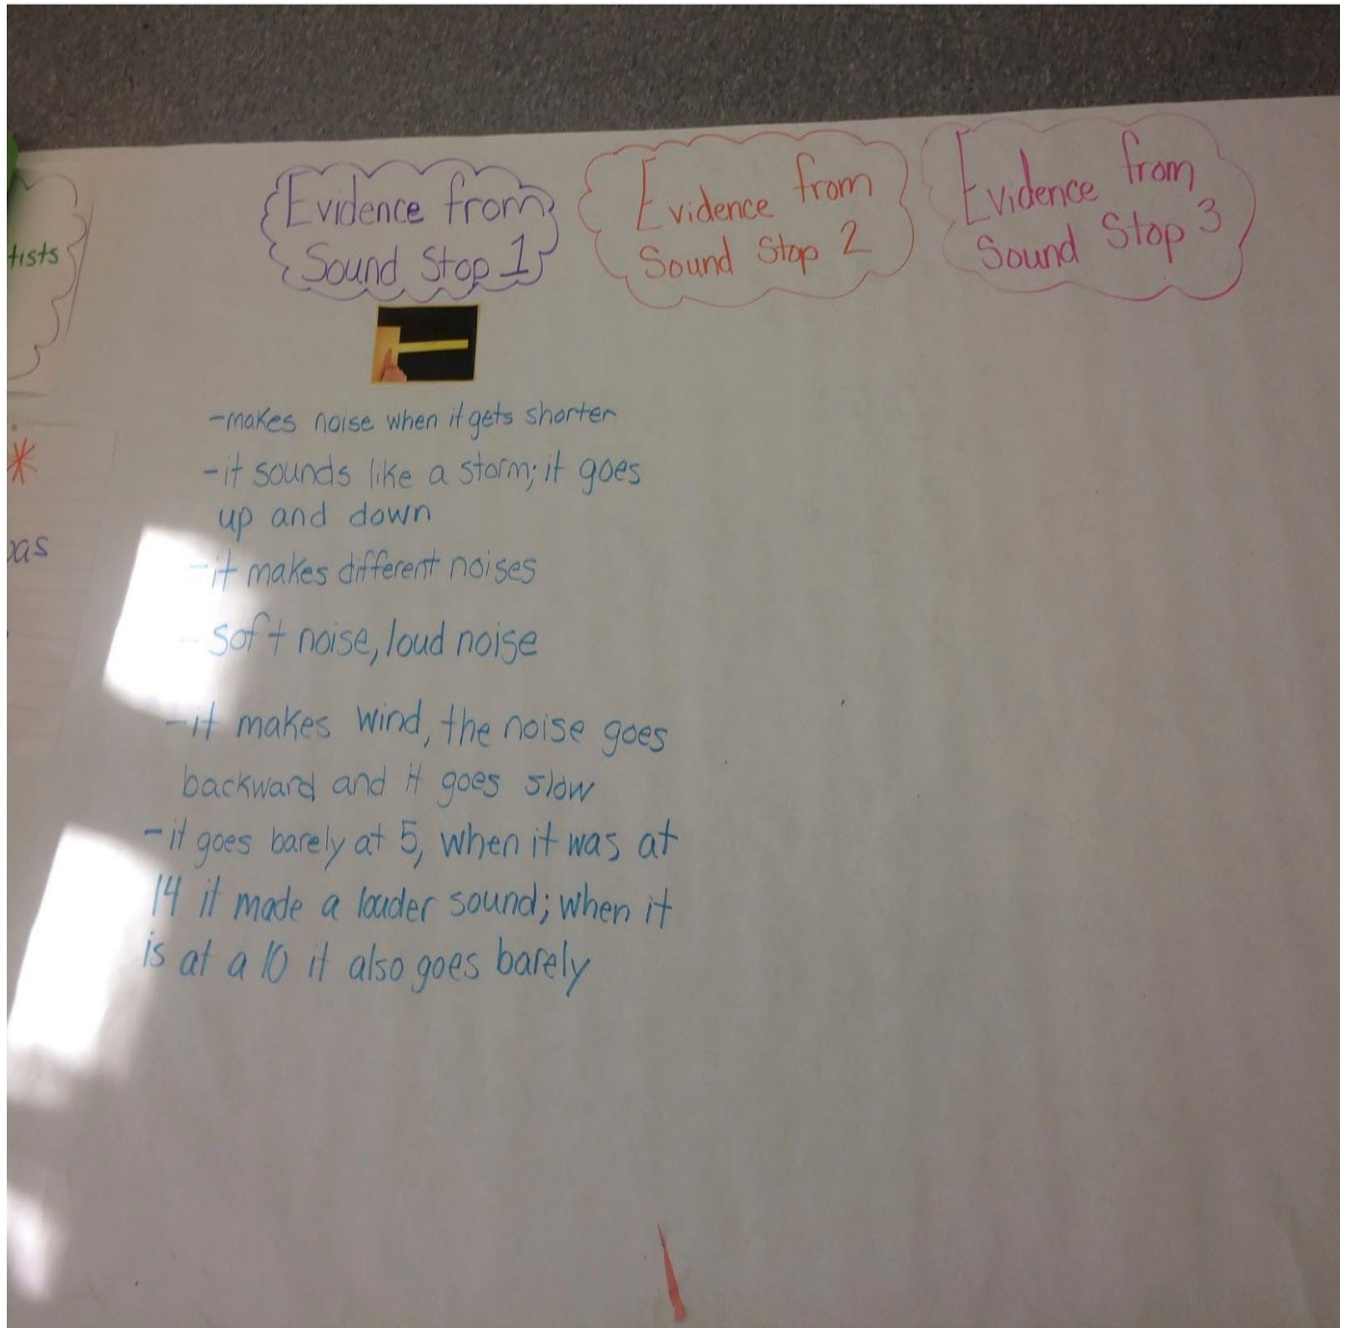 Evidence from
Sound Stop 1
Evidence from
Sound Stop 2
Evidence from
Sound Stop 3
tists
*
as
-makes noise when it gets shorter
-it sounds like a storm; it goes
up and down
-it makes different noises
- soft noise, loud noise
-it makes wind, the noise goes
backward and it goes slow
-it goes barely at 5, when it was at
14 it made a louder sound; when it
is at a 10 it also goes barely